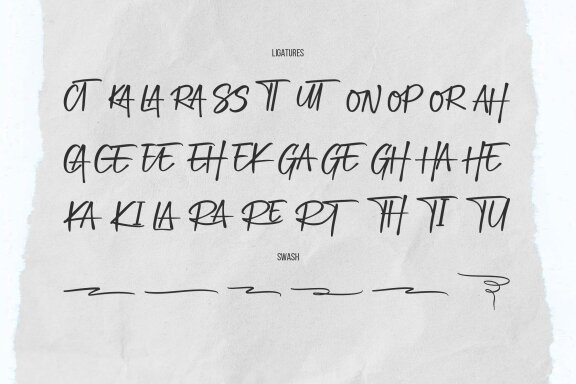 LIGATURES
CT KA LA RA SS TT UT ON OP OR AH
CA CE EE EH EK GA GE GH HA HE
KA KI LA RA RE RT TH TI TU
SWASH